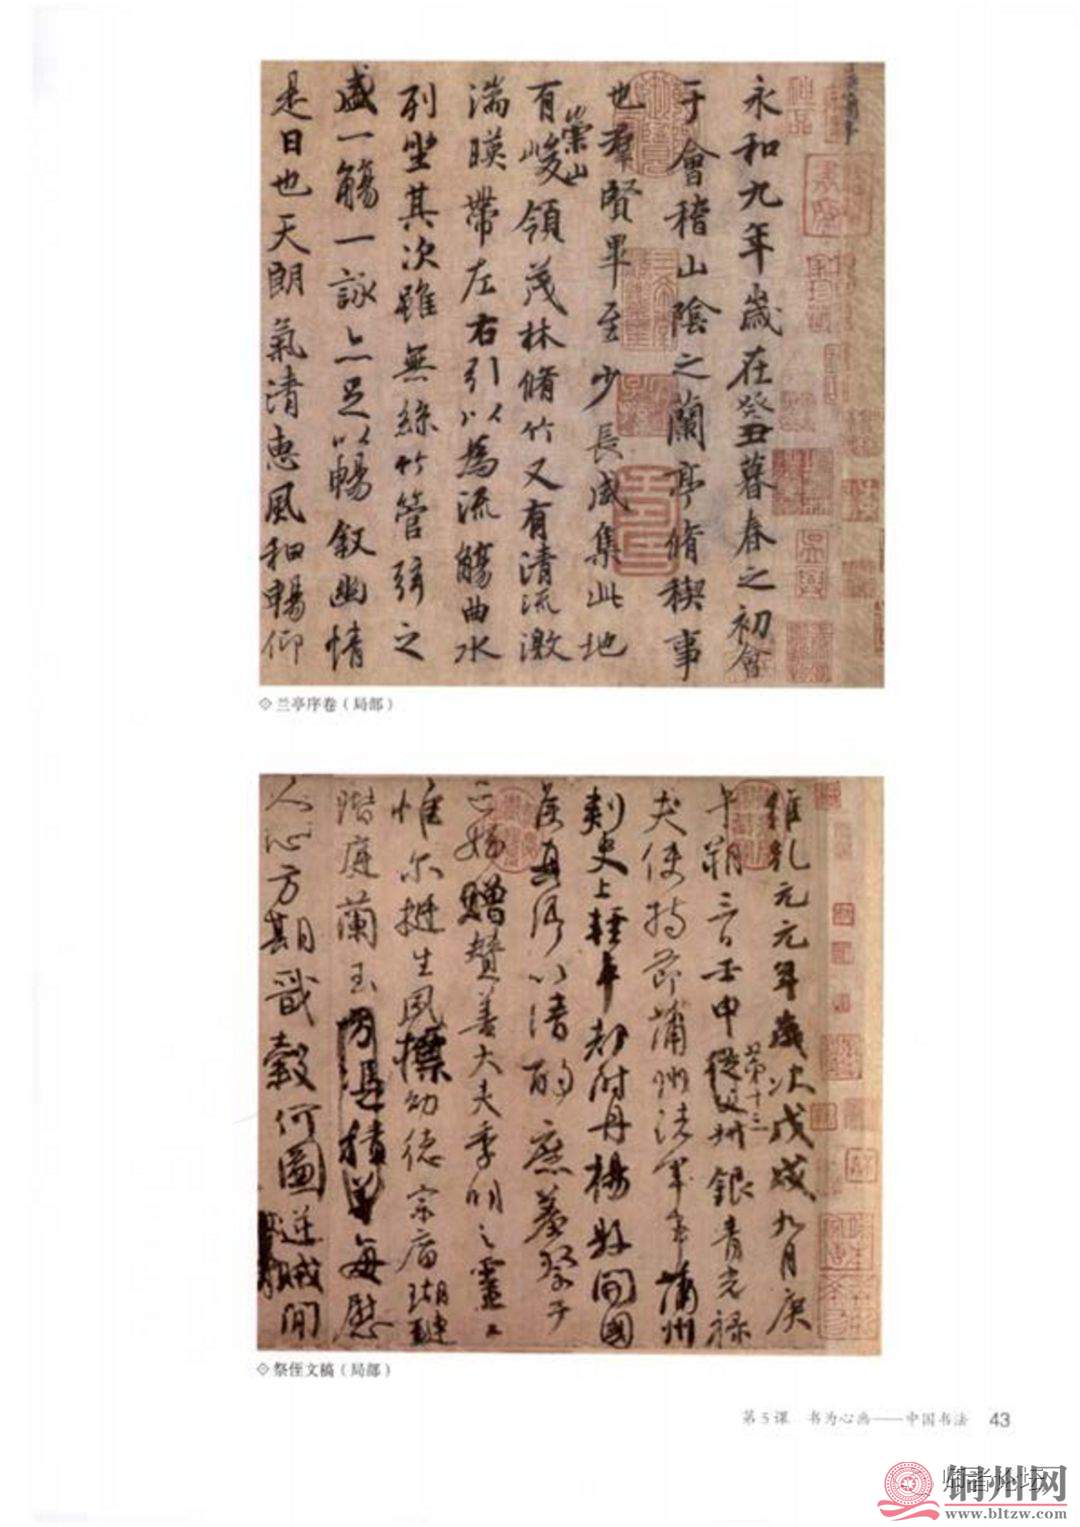 永和九年歲在癸丑暮春之初會
于會稽山陰之蘭亭脩稧事
也羣賢畢至少長咸集此地
有崇山峻領茂林脩竹又有清流激
湍暎帶左右引以為流觴曲水
列坐其次雖無絲竹管弦之
盛一觴一詠亦足以暢敘幽情
是日也天朗氣清惠風和暢仰
兰亭序卷(局部)
維乾元元年歲次戊戌九月庚
午朔三日壬申第十三從父銀青光祿
夫使持節蒲州諸軍事蒲州
刺史上輕車都尉丹楊縣開國
侯真卿以清酌庶羞祭于
亡姪贈贊善大夫季明之靈
惟爾挺生夙標幼德宗廟瑚璉
階庭蘭玉每慰
人心方期戩穀何圖逆賊間
祭侄文稿(局部)
第5课 书为心画——中国书法 43
师者论坛
铜州网
www.bltzw.com